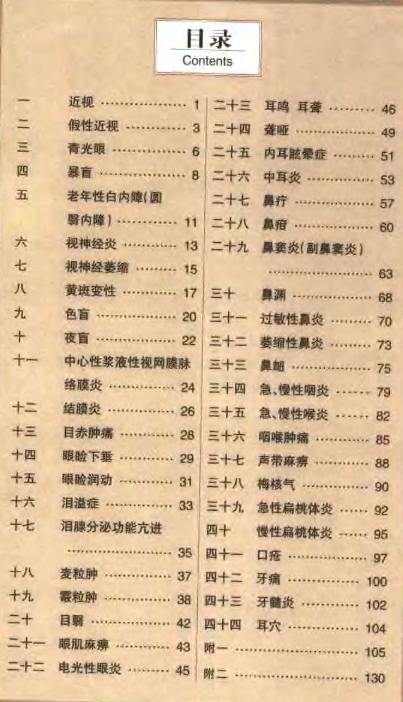 目录
Contents
一 近视 ……………… 1
二 假性近视 ………… 3
三 青光眼 …………… 6
四 暴盲 ……………… 8
五 老年性白内障(圆
翳内障) ………… 11
六 视神经炎 ………… 13
七 视神经萎缩 ……… 15
八 黄斑变性 ………… 17
九 色盲 ……………… 20
十 夜盲 ……………… 22
十一 中心性浆液性视网膜脉
络膜炎 …………… 24
十二 结膜炎 …………… 26
十三 目赤肿痛 ………… 28
十四 眼睑下垂 ………… 29
十五 眼睑润动 ………… 31
十六 泪溢症 …………… 33
十七 泪腺分泌功能亢进
……………………… 35
十八 麦粒肿 …………… 37
十九 霰粒肿 …………… 38
二十 目翳 ……………… 42
二十一 眼肌麻痹 ………… 43
二十二 电光性眼炎 ……… 45
二十三 耳鸣 耳聋 ……… 46
二十四 聋哑 …………… 49
二十五 内耳眩晕症 ……… 51
二十六 中耳炎 ………… 53
二十七 鼻疔 …………… 57
二十八 鼻疳 …………… 60
二十九 鼻窦炎(副鼻窦炎)
……………………… 63
三十 鼻渊 …………… 68
三十一 过敏性鼻炎 ……… 70
三十二 萎缩性鼻炎 ……… 73
三十三 鼻衄 …………… 75
三十四 急、慢性咽炎 …… 79
三十五 急、慢性喉炎 …… 82
三十六 咽喉肿痛 ……… 85
三十七 声带麻痹 ……… 88
三十八 梅核气 ………… 90
三十九 急性扁桃体炎 …… 92
四十 慢性扁桃体炎 …… 95
四十一 口疮 …………… 97
四十二 牙痛 …………… 100
四十三 牙髓炎 ………… 102
四十四 耳穴 …………… 104
附一 ……………………… 105
附二 ……………………… 130